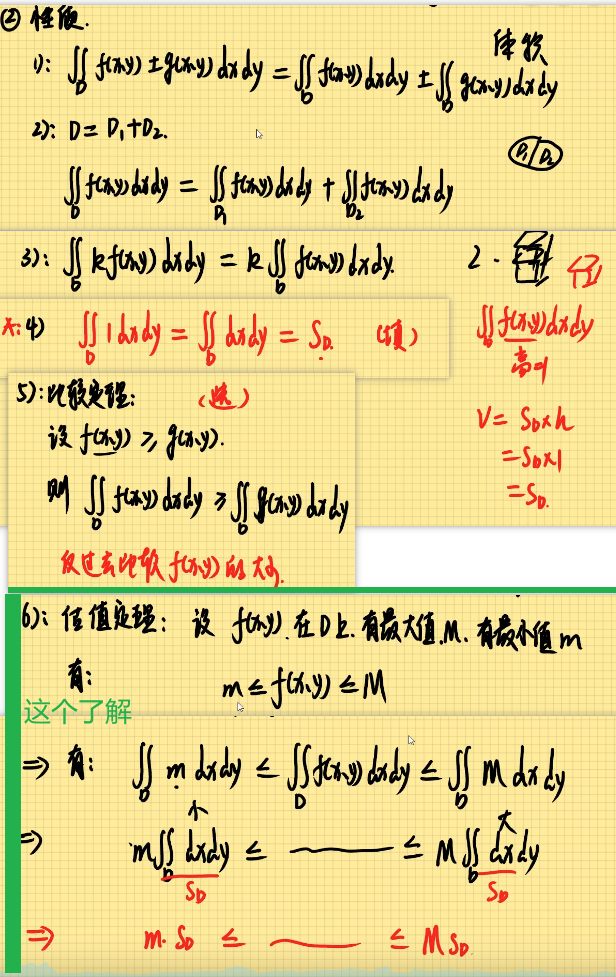 ② 性质.
体积
1): ∬_D f(x,y) ± g(x,y) dxdy = ∬_D f(x,y) dxdy ± ∬_D g(x,y) dxdy
2): D = D₁ + D₂.
D₁ / D₂
∬_D f(x,y) dxdy = ∬_D₁ f(x,y) dxdy + ∬_D₂ f(x,y) dxdy
3): ∬_D k f(x,y) dxdy = k ∬_D f(x,y) dxdy.
2 ·
4) ∬_D 1 dxdy = ∬_D dxdy = S_D. (填)
∬_D f(x,y) dxdy
高=1
V = S_D × h
= S_D × 1
= S_D.
5): 比较定理: (选)
设 f(x,y) ≥ g(x,y).
则 ∬_D f(x,y) dxdy ≥ ∬_D g(x,y) dxdy
反过去比较 f(x,y) 的大小.
6): 估值定理: 设 f(x,y) 在 D 上. 有最大值 M. 有最小值 m
有: m ≤ f(x,y) ≤ M
这个了解
⇒ 有: ∬_D m dxdy ≤ ∬_D f(x,y) dxdy ≤ ∬_D M dxdy
小 大
⇒ m ∬_D dxdy ≤ ≤ M ∬_D dxdy
S_D S_D
⇒ m · S_D ≤ ≤ M S_D.